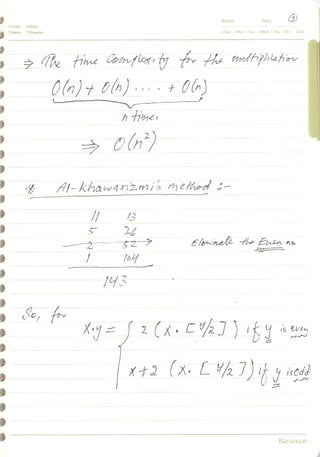 ③
⇒ The time Complexity for the multiplication
O(n) + O(n) . . . . + O(n)
n times
⇒ O(n²)
* Al-khawarizmi's method :-
11 13
5 26
2 52 → Eliminate the Even no
1 104
143
So, for
x.y = { 2 (x . [y/2]) if y is even
x+2 (x. [y/2]) if y is odd